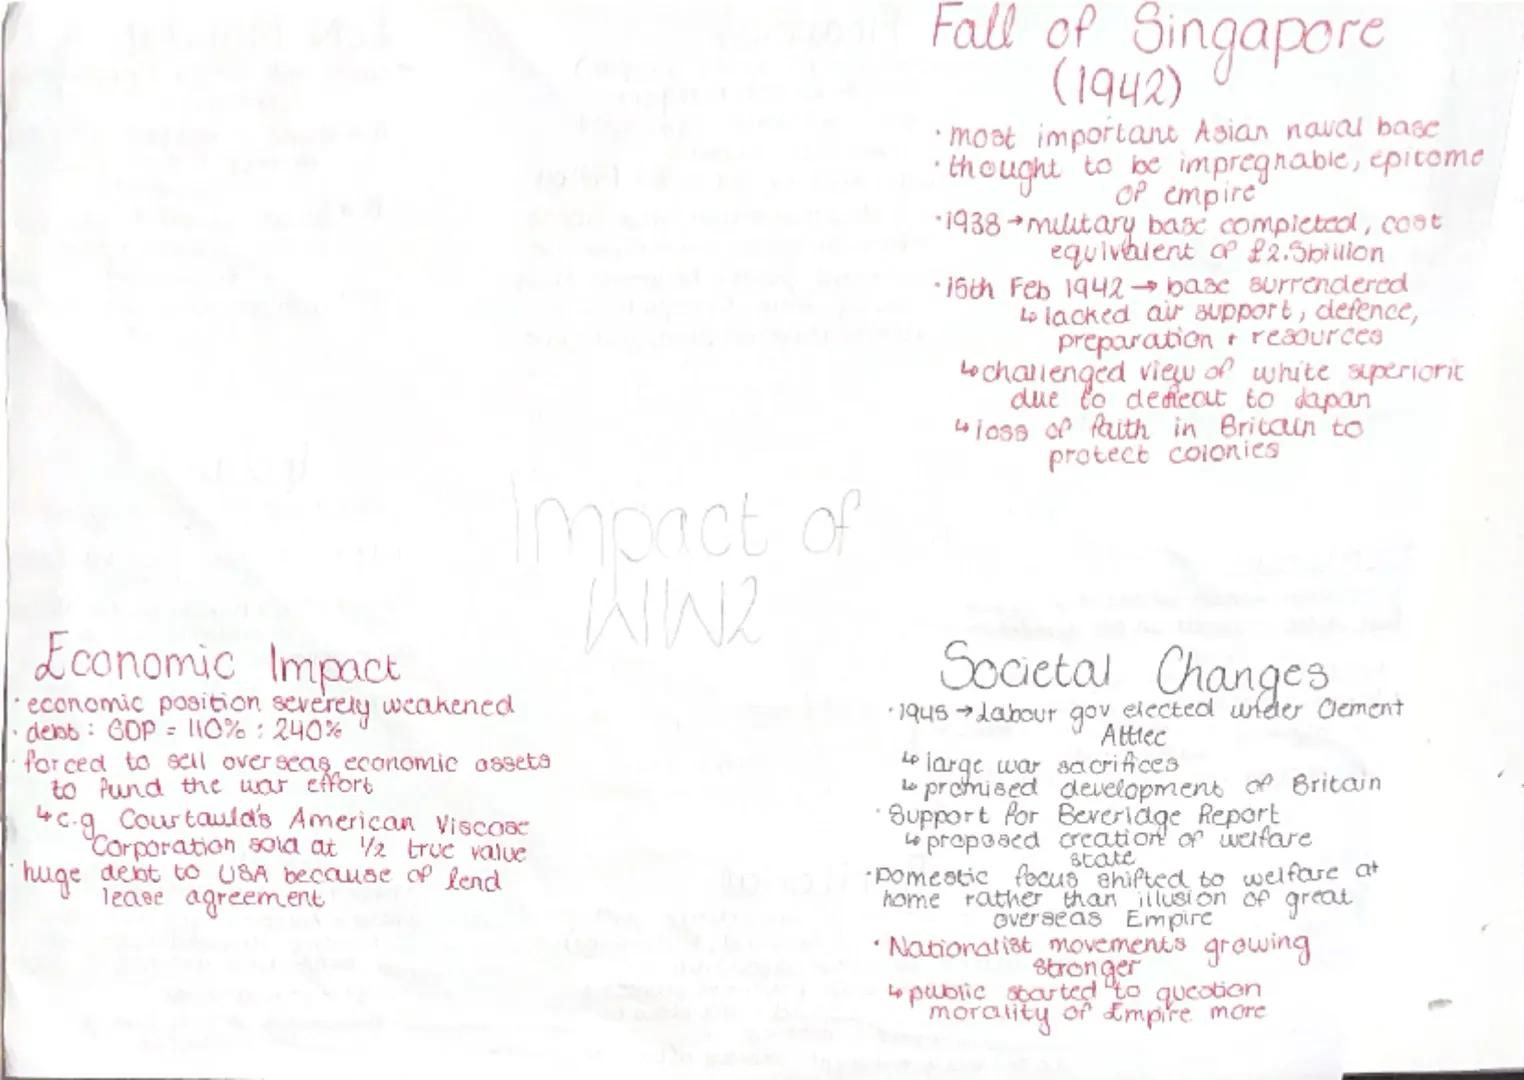 Fall of Singapore
(1942)
· most important Asian naval base
· thought to be impregnable, epitome
of empire
· 1938 → military base completed, cost
equivalent of £2.5billion
· 15th Feb 1942 → base surrendered
↳ lacked air support, defence,
preparation + resources
↳ challenged view of white superiorit
due to defeat to Japan
↳ loss of faith in Britain to
protect colonies
Impact of
WW2
Economic Impact
· economic position severely weakened
· debt : GDP = 110% : 240%
· forced to sell overseas economic assets
to fund the war effort
↳ e.g Courtauld's American Viscose
Corporation sold at 1/2 true value
· huge debt to USA because of lend
lease agreement
Societal Changes
· 1945 → Labour gov elected under Clement
Attlee
↳ large war sacrifices
↳ promised development of Britain
· Support for Beveridge Report
↳ proposed creation of welfare
state
· Domestic focus shifted to welfare at
home rather than illusion of great
overseas Empire
· Nationalist movements growing
stronger
↳ public started to question
morality of Empire more